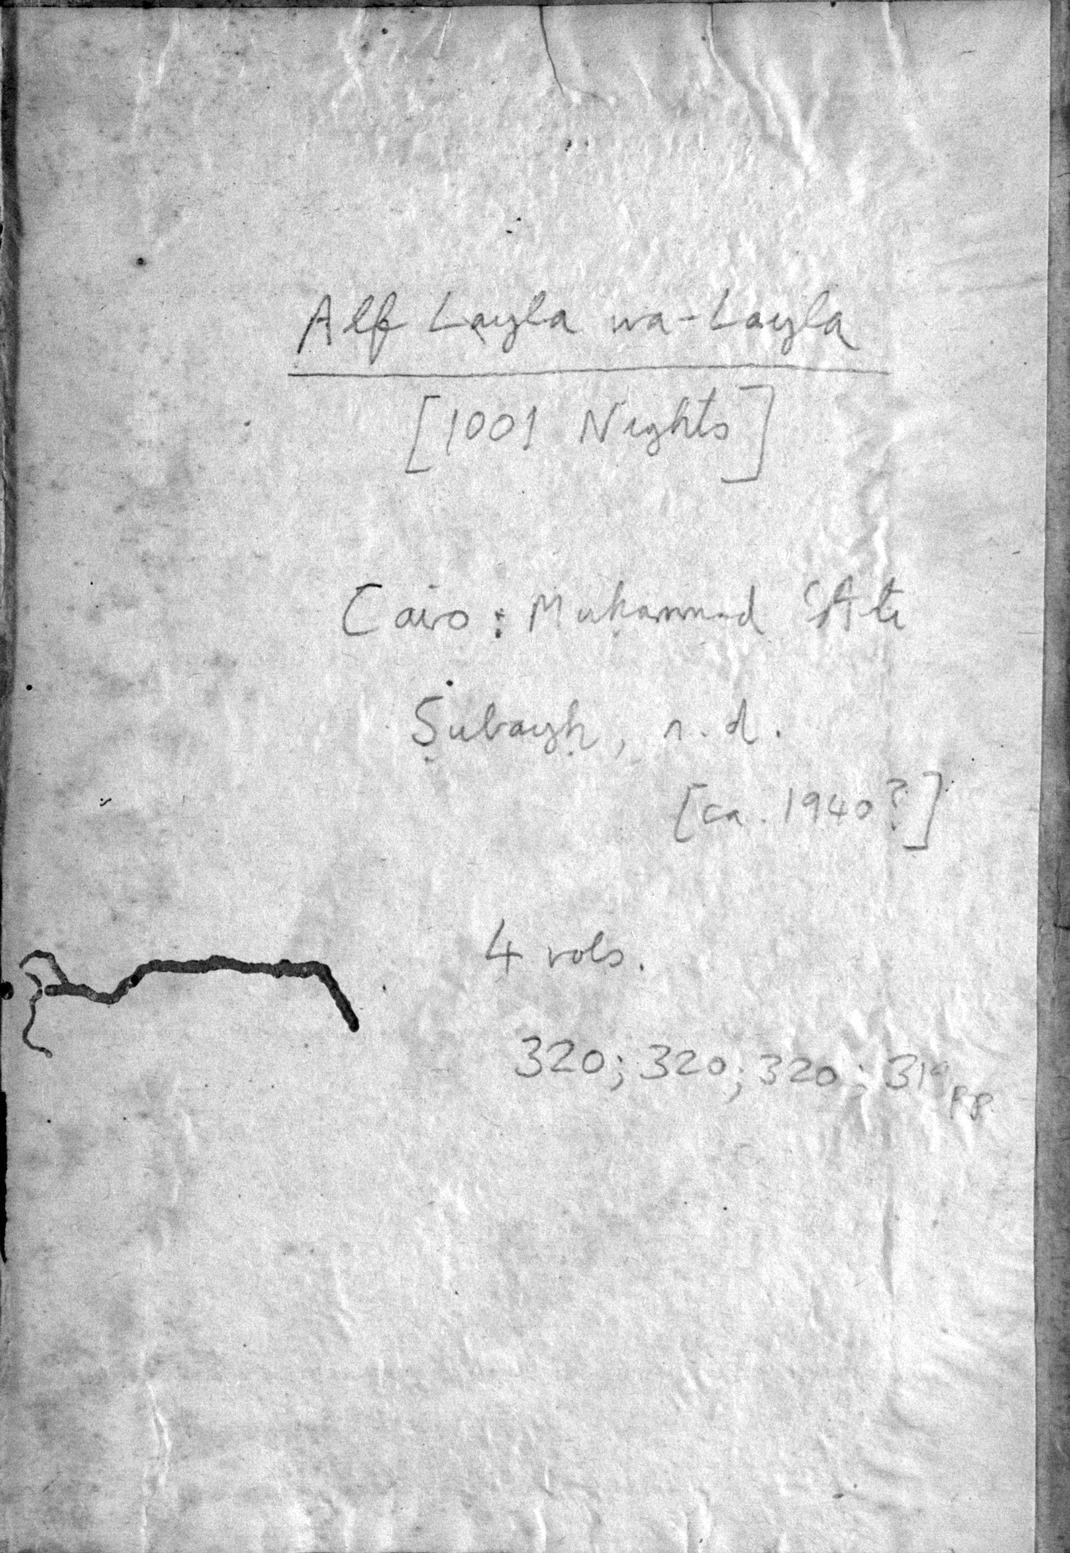 Alf Layla wa-Layla
[1001 Nights]
Cairo: Muḥammad ʿAlī
Ṣubayḥ, n.d.
[ca. 1940?]
4 vols.
320; 320; 320; 319 pp.